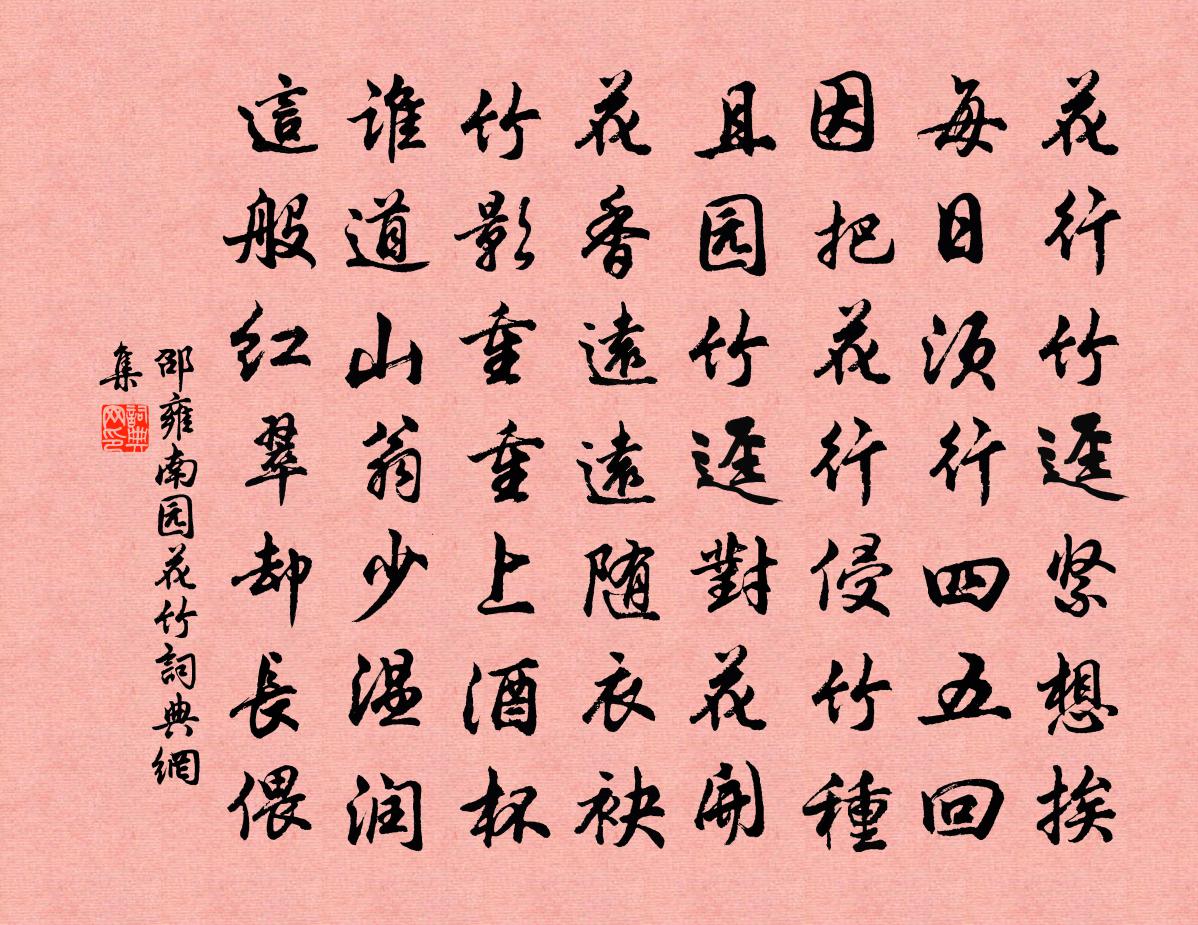 花行竹逕紧想挨
每日须行四五回
因把花行侵竹種
且园竹逕對花開
花香遠遠随衣袂
竹影重重上酒杯
谁道山翁少温润
這般红翠却長偎
邵雍南园花竹詞典網
集
詞典
网印